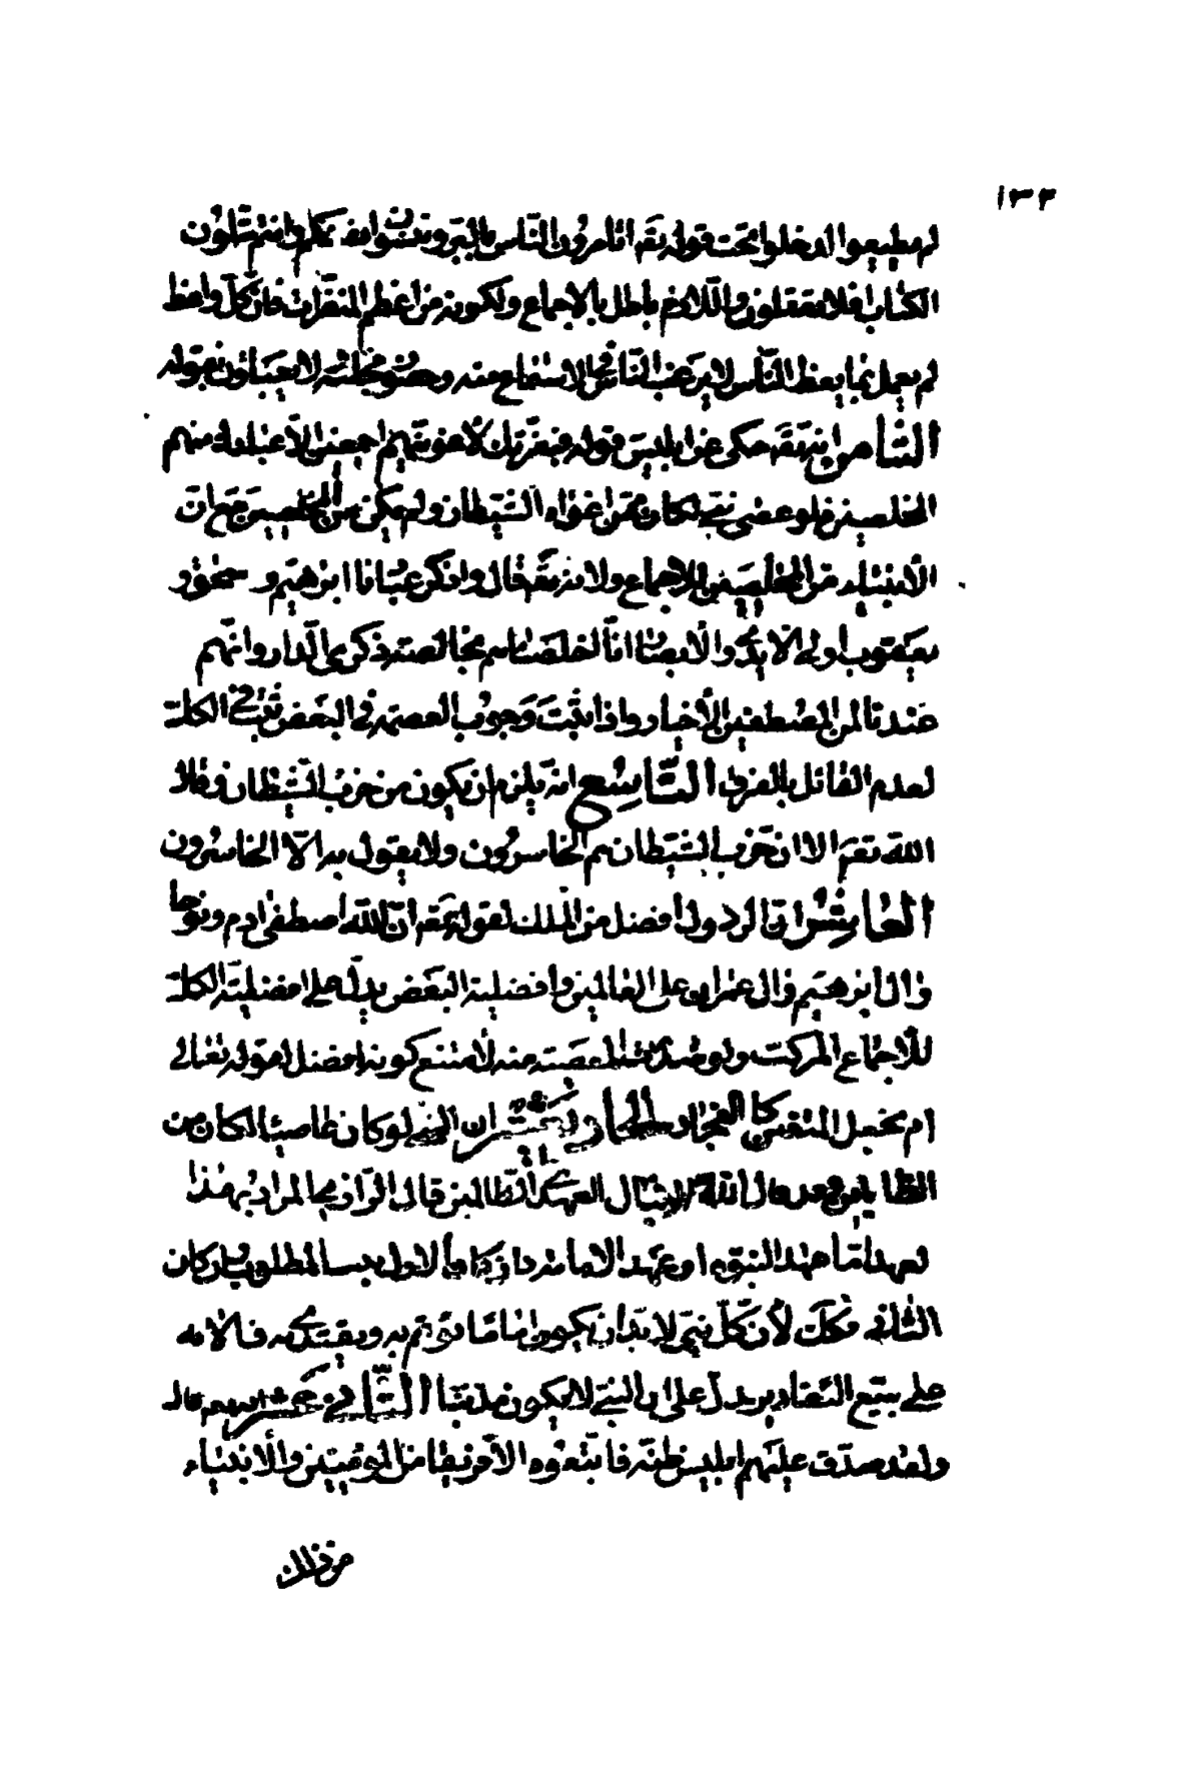 ١٣٢
لم يطيعوا لدخلوا تحت قوله تعَم اتأمرون الناس بالبرّ وتنسون انفسكم وانتم تتلون
الكتاب افلا تعقلون واللازم باطل بالاجماع ولكونه من اعظم المنفّرات فان كلّ واعظ
لم يعمل بما يعظ الناس لا يرغب الناس في الاستماع منه وحضور مجلسه لا يعبئون بقوله
الثامن انه تعَم حكى عن ابليس قوله فبعزّتك لأغوينّهم اجمعين الّا عبادك منهم
المخلصين فلو عصى نبيّ لكان ممّن اغواه الشيطان ولم يكن من المخلصين مع انّ
الأنبياء من المخلصين للاجماع ولانه تعَم قال واذكر عبادنا ابرهيم و اسحق و
يعقوب اولي الأيدي والأبصار انّا اخلصناهم بخالصة ذكرى الدار وانّهم
عندنا لمن المصطفين الأخيار واذا ثبت وجوب العصمة في البعض ثبت في الكل
لعدم القائل بالفرق التاسع انه يلزم ان يكون من حزب الشيطان وقال
الله تعَم الا ان حزب الشيطان هم الخاسرون ولا يقول به الّا الخاسرون
العاشر انّ الرسول افضل من الملك لقوله تعَم انّ الله اصطفى ادم ونوحا
وال ابرهيم وال عمران على العالمين وافضلية البعض يدلّ على افضلية الكل
للاجماع المركب ولو صدرت المعصية منه لامتنع كونه افضل لقوله تعالى
ام نجعل المتقين كالفجار الحادي عشر ان النبي لو كان عاصيا لكان من
الظالمين وقد قال الله لا ينال عهدي الظالمين قال الرازي المراد بهذا
العهد امّا عهد النبوّة او عهد الامامة فان كان الاول فهو المطلوب وان كان
الثاني فكك لأن كلّ نبيّ لا بدّ ان يكون اماما يؤتم به ويقتدى به فالاية
على جميع التقادير يدلّ على ان النبيّ لا يكون مذنبا الثاني عشر انه قال
ولقد صدّق عليهم ابليس ظنّه فاتّبعوه الا فريقا من المؤمنين والأنبياء
من ذلك